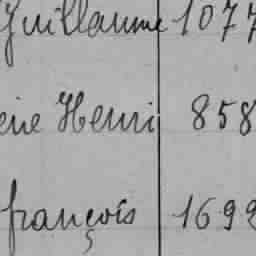 Guillaume 1077
ène Henri 858
françois 1692